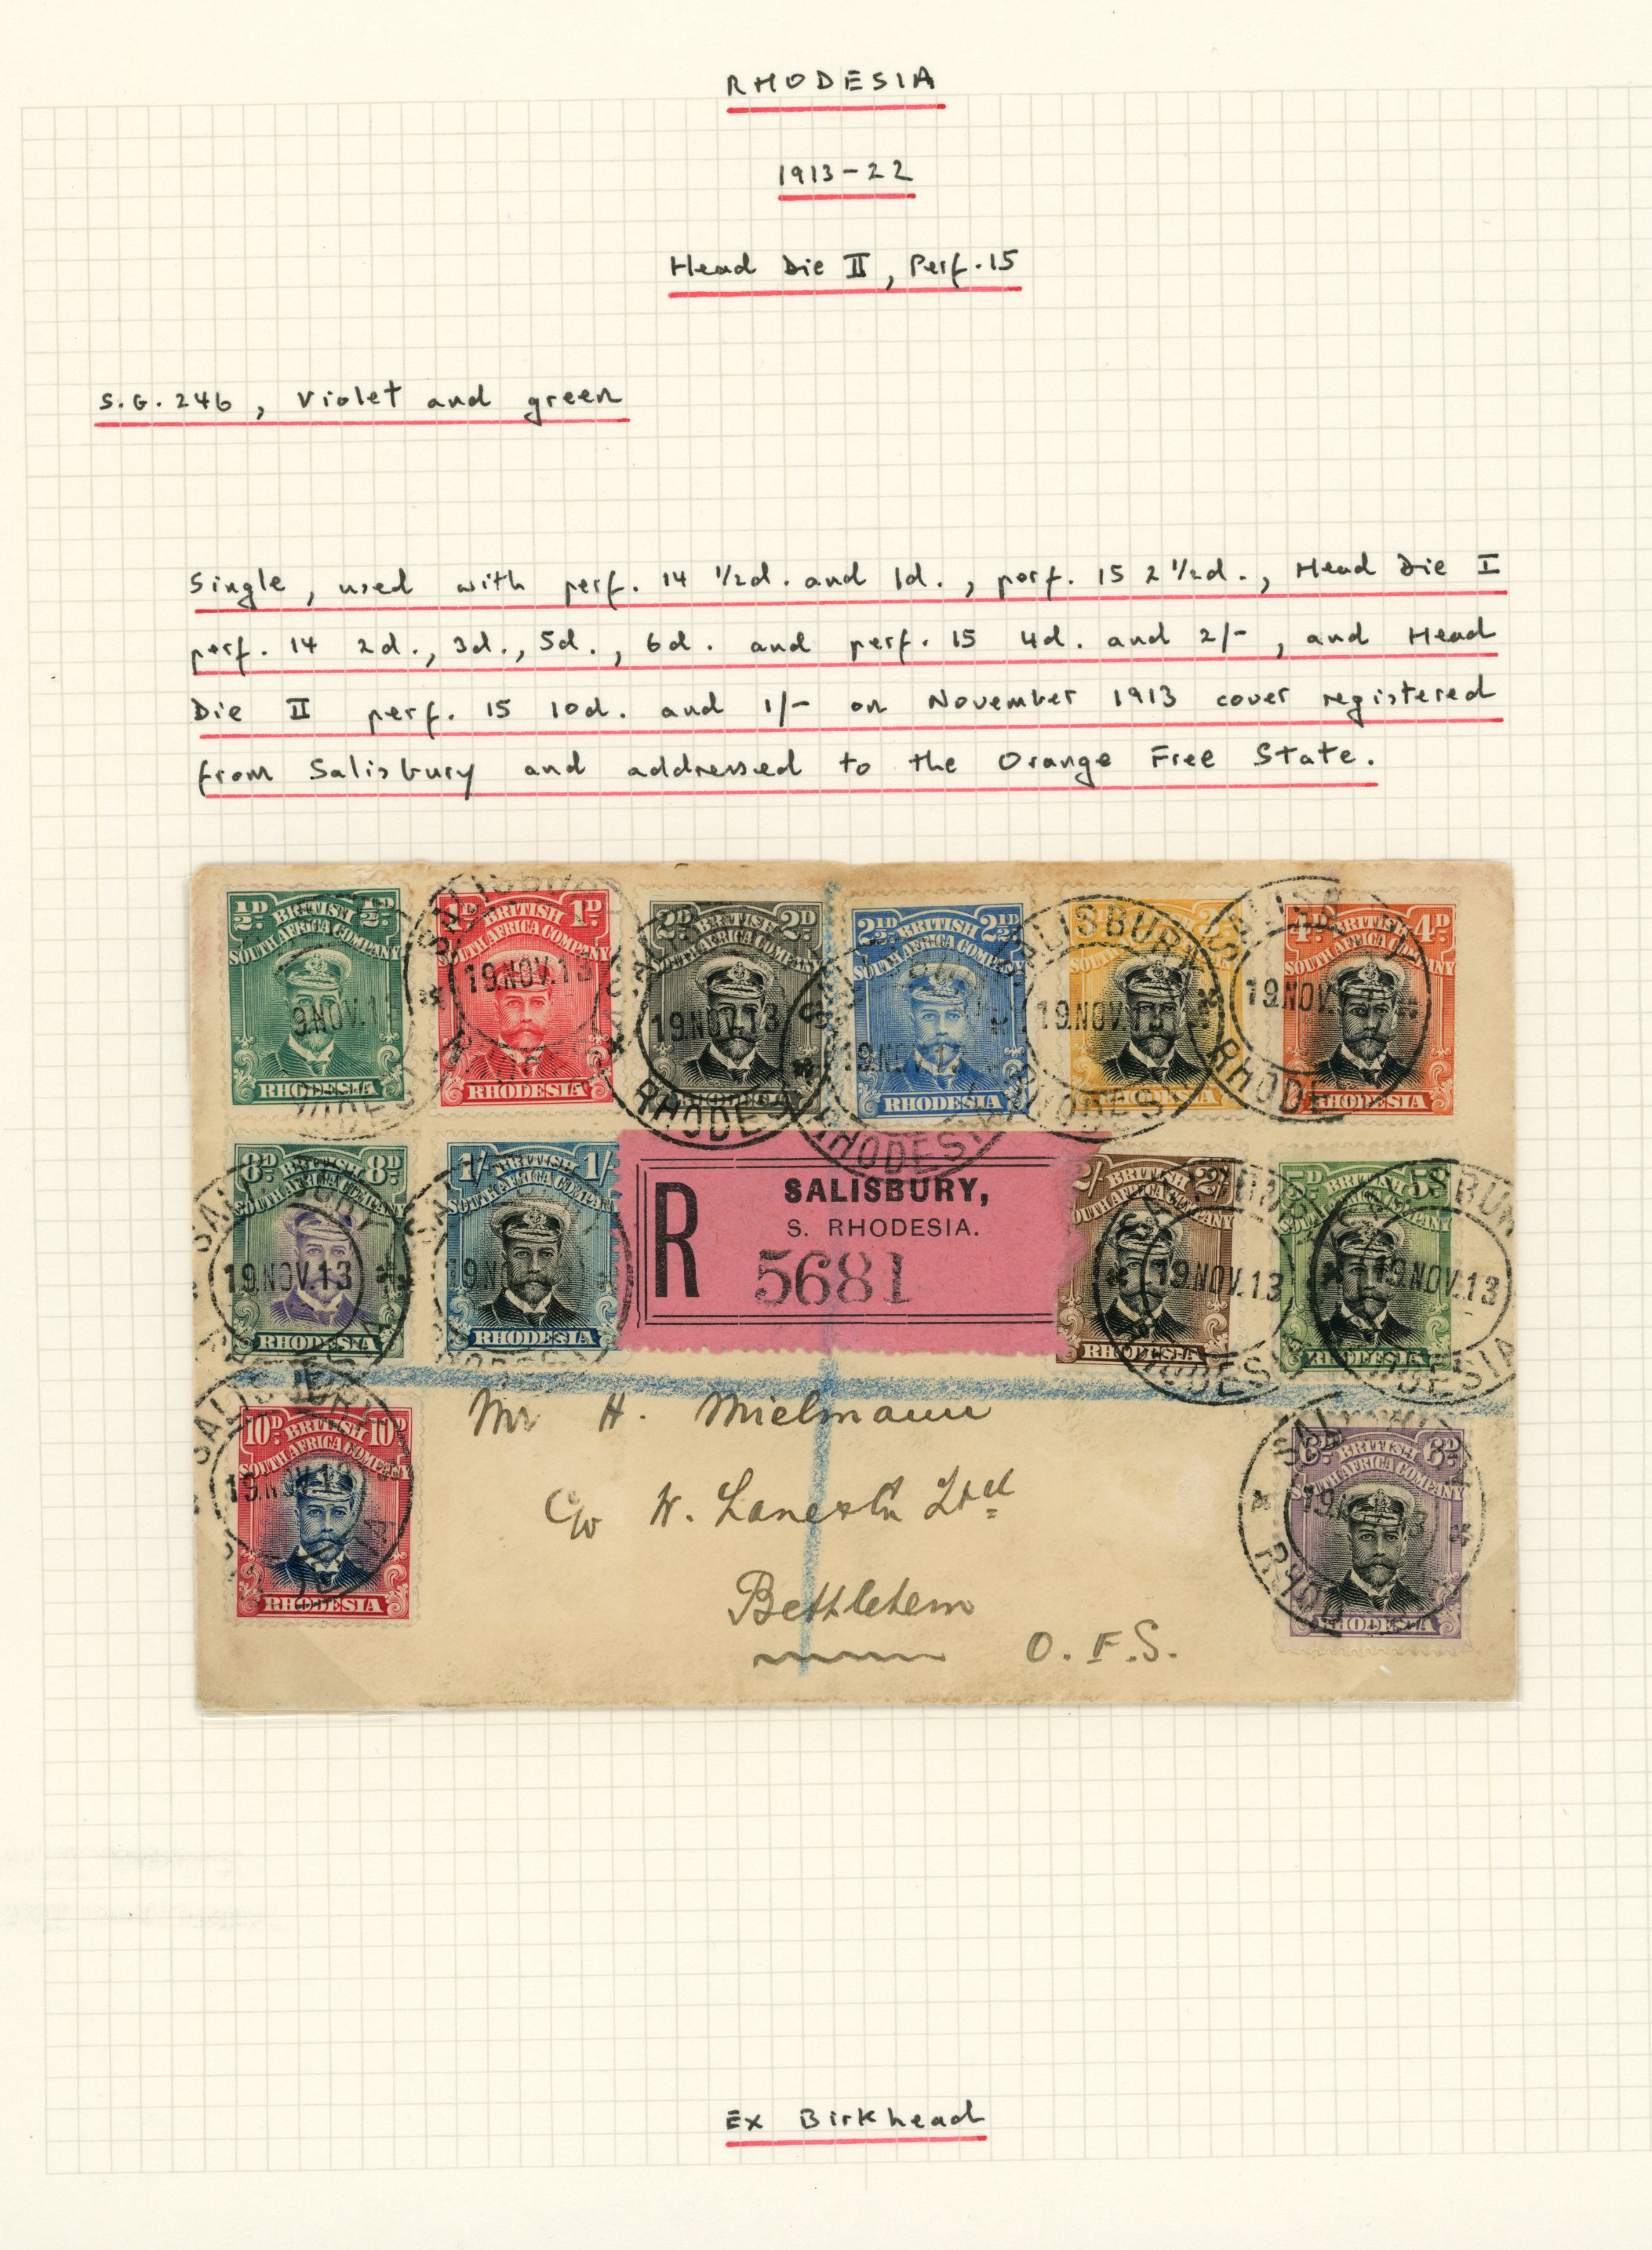 RHODESIA
1913-22
Head Die II, Perf. 15
S.G. 246, Violet and green
Single, used with perf. 14 ½d. and 1d., perf. 15 2½d., Head Die I
perf. 14 2d., 3d., 5d., 6d. and perf. 15 4d. and 2/-, and Head
Die II perf. 15 10d. and 1/- on November 1913 cover registered
from Salisbury and addressed to the Orange Free State.
½D BRITISH ½D
SOUTH AFRICA COMPANY
RHODESIA
1D BRITISH 1D
SOUTH AFRICA COMPANY
RHODESIA
19.NOV.13
2D BRITISH 2D
SOUTH AFRICA COMPANY
RHODESIA
19.NOV.13
2½D BRITISH 2½D
SOUTH AFRICA COMPANY
RHODESIA
3D BRITISH 3D
SOUTH AFRICA COMPANY
RHODESIA
SALISBURY
19.NOV.13
RHODESIA
4D BRITISH 4D
SOUTH AFRICA COMPANY
RHODESIA
8D BRITISH 8D
SOUTH AFRICA COMPANY
RHODESIA
19.NOV.13
1/- BRITISH 1/-
SOUTH AFRICA COMPANY
RHODESIA
R
SALISBURY,
S. RHODESIA.
5681
2/- BRITISH 2/-
SOUTH AFRICA COMPANY
RHODESIA
19.NOV.13
5D BRITISH 5D
SOUTH AFRICA COMPANY
RHODESIA
19.NOV.13
10D BRITISH 10D
SOUTH AFRICA COMPANY
RHODESIA
SALISBURY
19.NOV.13
6D BRITISH 6D
SOUTH AFRICA COMPANY
RHODESIA
Mr H. Mielmann
c/o Ltd
Bethlehem
O.F.S.
Ex Birkhead